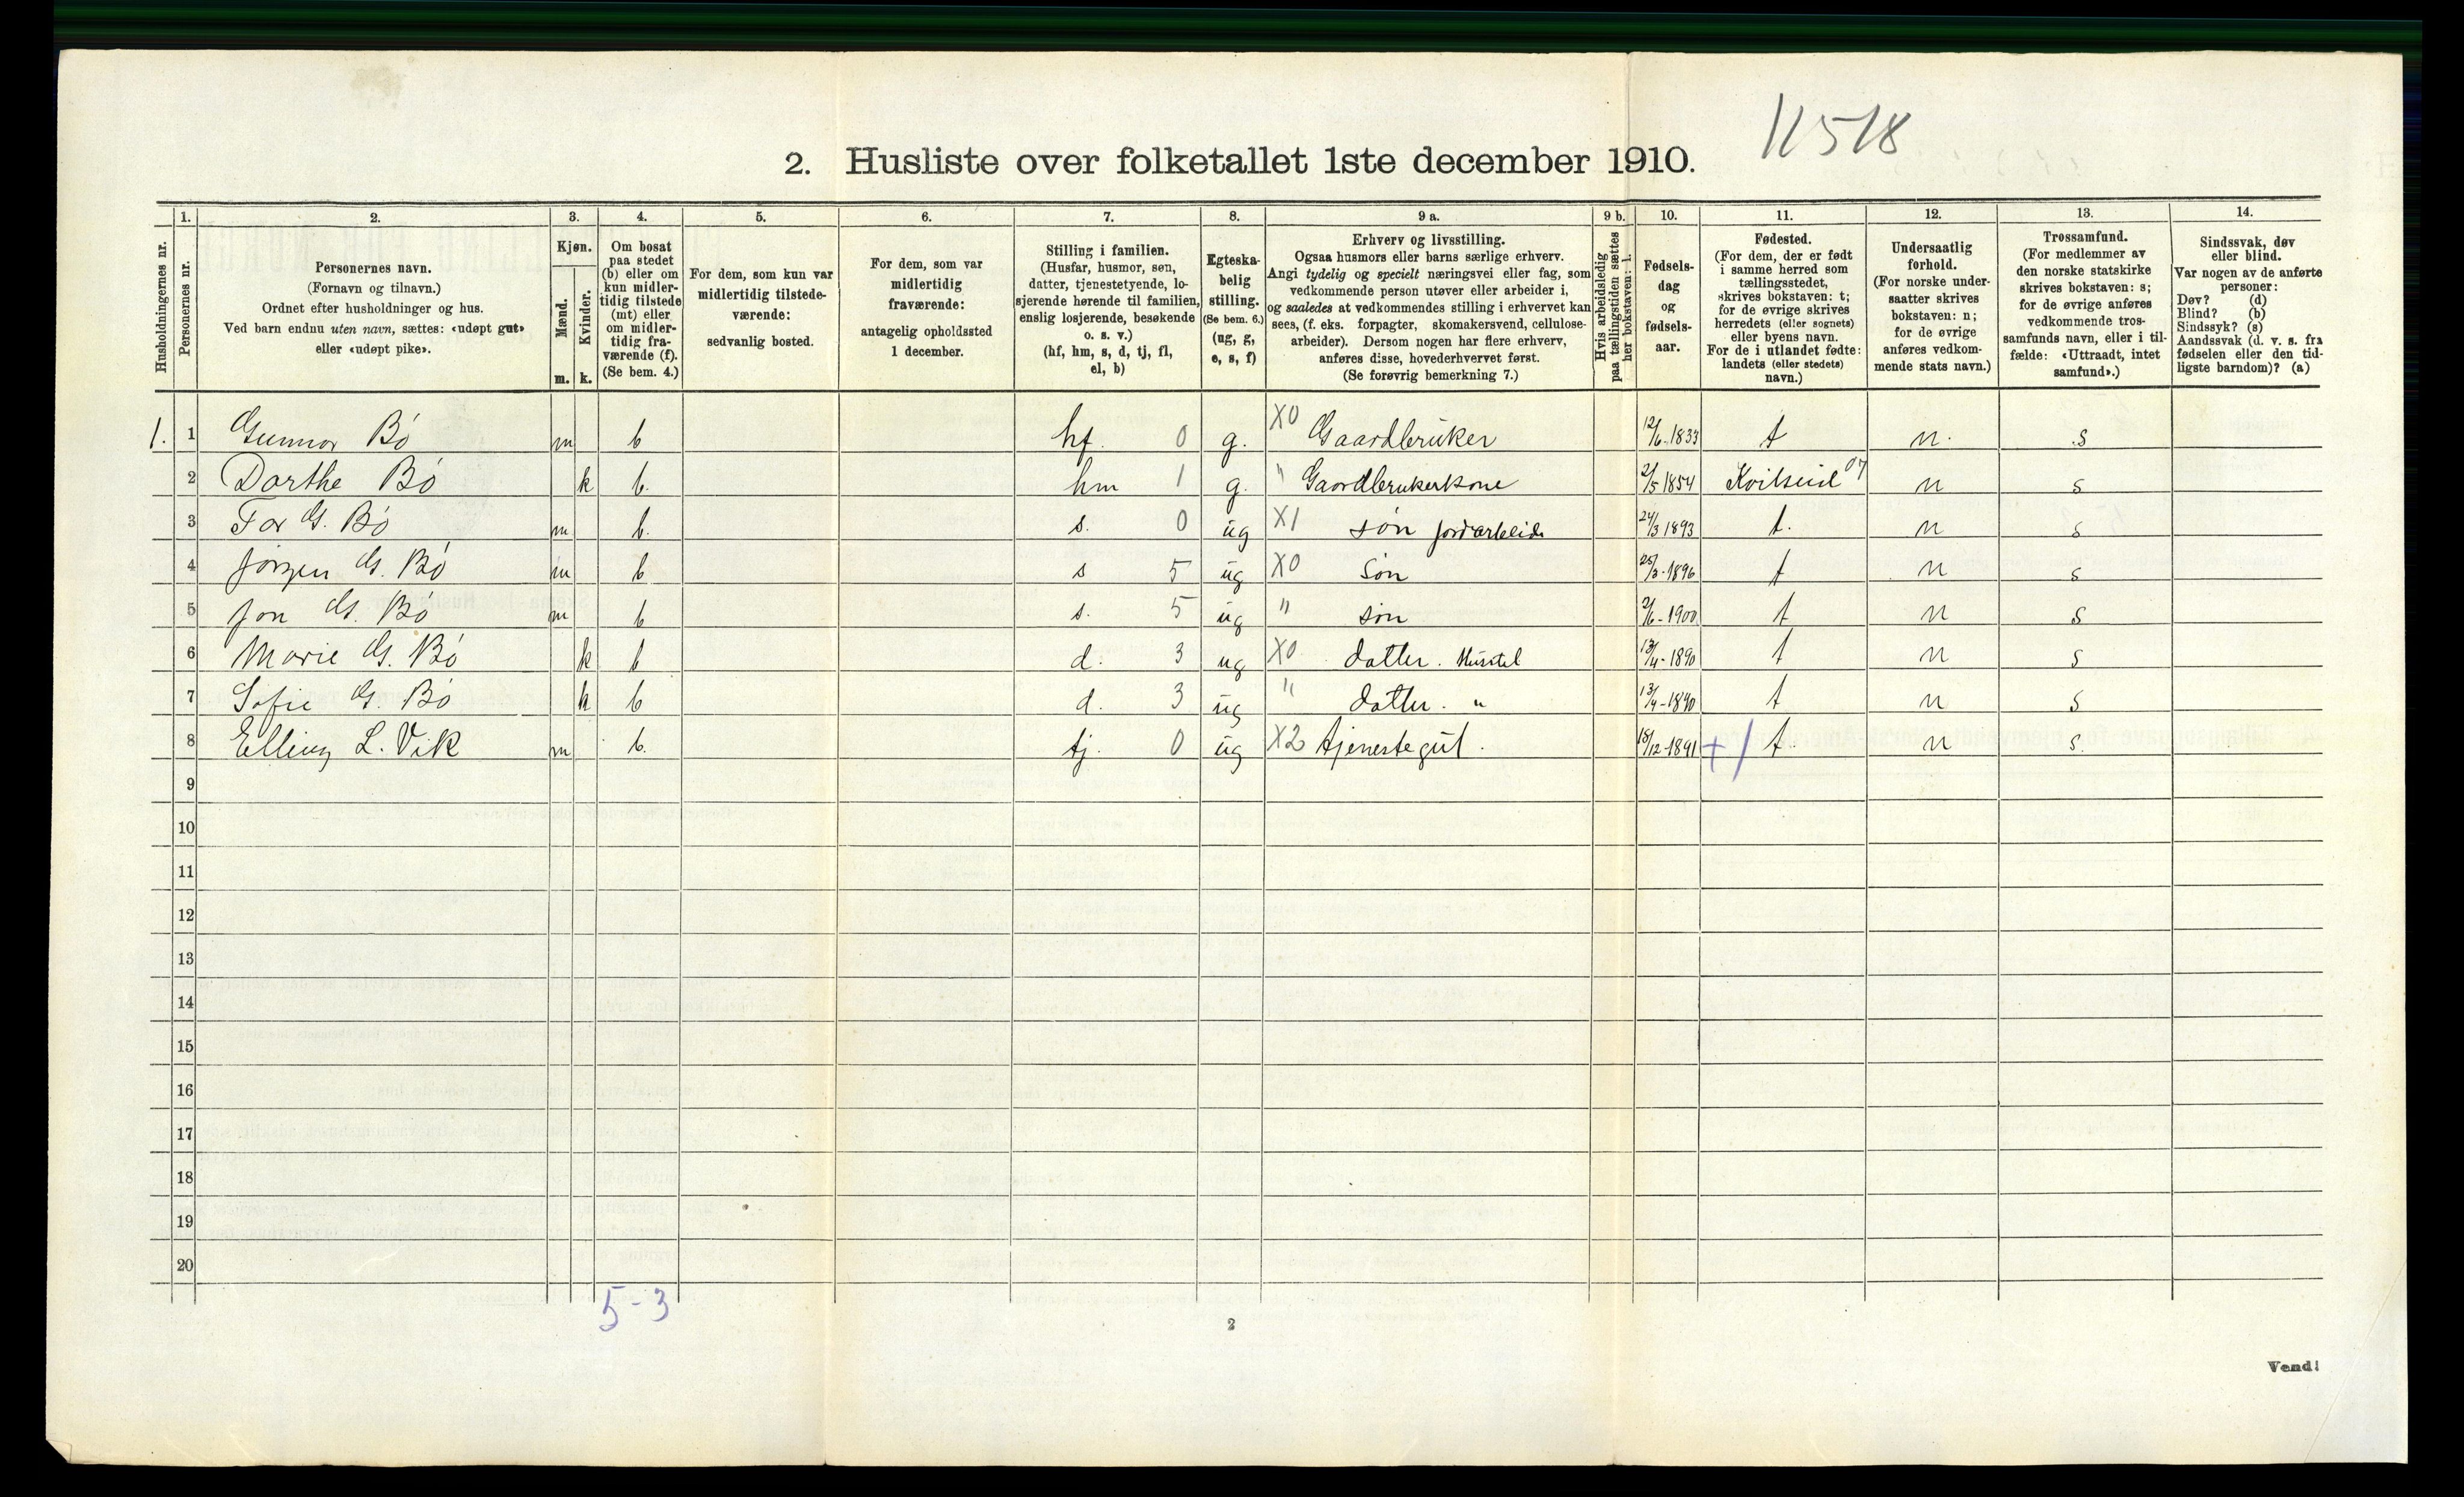 11518
2. Husliste over folketallet 1ste december 1910.
Husholdningernes nr.
1.
Personernes nr.
2.
Personernes navn.
(Fornavn og tilnavn.)
Ordnet efter husholdninger og hus.
Ved barn endnu uten navn, sættes: «udøpt gut»
eller «udøpt pike».
3.
Kjøn.
Mænd.
Kvinder.
m. k.
4.
Om bosat
paa stedet
(b) eller om
kun midler-
tidig tilstede
(mt) eller
om midler-
tidig fra-
værende (f).
(Se bem. 4.)
5.
For dem, som kun var
midlertidig tilstede-
værende:
sedvanlig bosted.
6.
For dem, som var
midlertidig
fraværende:
antagelig opholdssted
1 december.
7.
Stilling i familien.
(Husfar, husmor, søn,
datter, tjenestetyende, lo-
sjerende hørende til familien,
enslig losjerende, besøkende
o. s. v.)
(hf, hm, s, d, tj, fl,
el, b)
8.
Egteska-
belig
stilling.
(Se bem. 6.)
(ug, g,
e, s, f)
9 a.
Erhverv og livsstilling.
Ogsaa husmors eller barns særlige erhverv.
Angi tydelig og specielt næringsvei eller fag, som
vedkommende person utøver eller arbeider i,
og saaledes at vedkommendes stilling i erhvervet kan
sees, (f. eks. forpagter, skomakersvend, cellulose-
arbeider). Dersom nogen har flere erhverv,
anføres disse, hovederhvervet først.
(Se forøvrig bemerkning 7.)
9 b.
Hvis arbeidsledig
paa tællingstiden sættes
her bokstaven: l.
10.
Fødsels-
dag
og
fødsels-
aar.
11.
Fødested.
(For dem, der er født
i samme herred som
tællingsstedet,
skrives bokstaven: t;
for de øvrige skrives
herredets (eller sognets)
eller byens navn.
For de i utlandet fødte:
landets (eller stedets)
navn.)
12.
Undersaatlig
forhold.
(For norske under-
saatter skrives
bokstaven: n;
for de øvrige
anføres vedkom-
mende stats navn.)
13.
Trossamfund.
(For medlemmer av
den norske statskirke
skrives bokstaven: s;
for de øvrige anføres
vedkommende tros-
samfunds navn, eller i til-
fælde: «Uttraadt, intet
samfund».)
14.
Sindssvak, døv
eller blind.
Var nogen av de anførte
personer:
Døv? (d)
Blind? (b)
Sindssyk? (s)
Aandssvak (d. v. s. fra
fødselen eller den tid-
ligste barndom)? (a)
1. 1 Gunnar Bö m b hf. 0 g. X0 Gaardbruker 12/6-1833 t n. s
2 Dorthe Bö k b. hm 1 g. " Gaardbrukerkone 2/5 1854 Kvitseid 07 n s
3 Tor G. Bö m b. s. 0 ug X1 søn jordarbeide 24/3 1893 t. n s
4 Jørgen G. Bö m b s 5 ug X0 Søn 25/3-1896 t n s
5 Jon G. Bö m b s. 5 ug " søn 2/6-1900 t n s
6 Marie G. Bö k b d. 3 ug X0 datter. Husstel 13/4-1890 t n s
7 Sofie G. Bö k b d. 3 ug " datter. " 13/4-1890 t n s
8 Elling L. Vik m b. tj. 0 ug X2 tjenestegut. 18/12-1891 + / t. n s.
9
10
11
12
13
14
15
16
17
18
19
20
5-3
2
Vend!